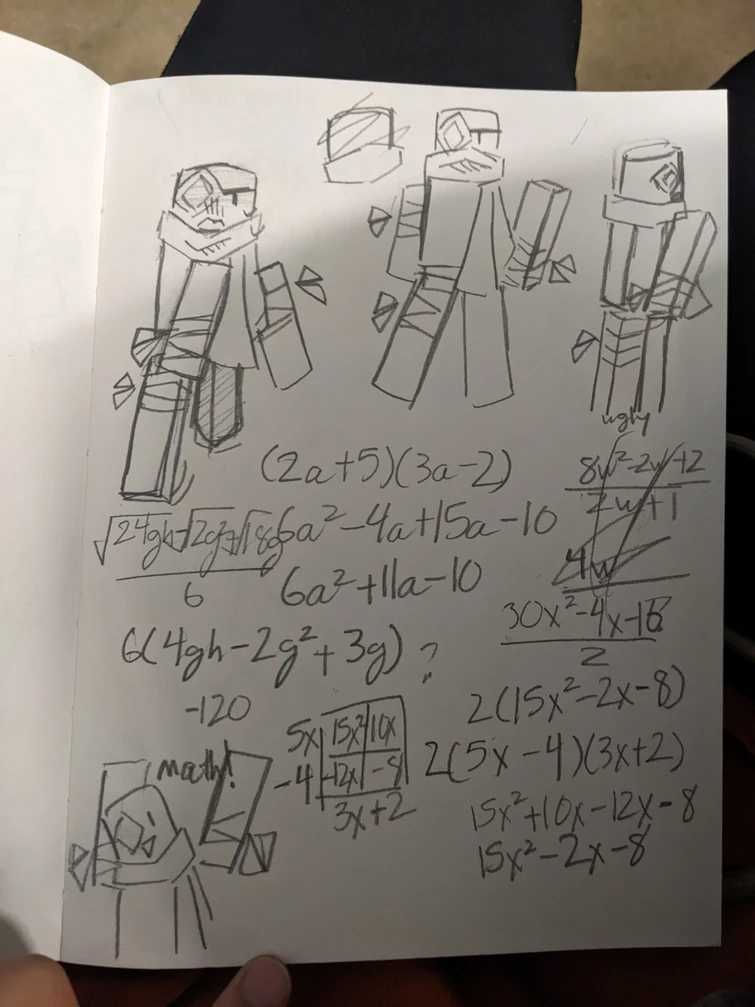 ugly
(2a+5)(3a-2)
8w²-2w+2
2w+1
4w
√24gh-√2g²+√18g
6
6a²-4a+15a-10
6a²+11a-10
30x²-4x-16
2
6(4gh-2g²+3g) ?
2(15x²-2x-8)
-120
5x 15x² 10x
-4 -12x -8
3x+2
2(5x-4)(3x+2)
15x²+10x-12x-8
15x²-2x-8
math!